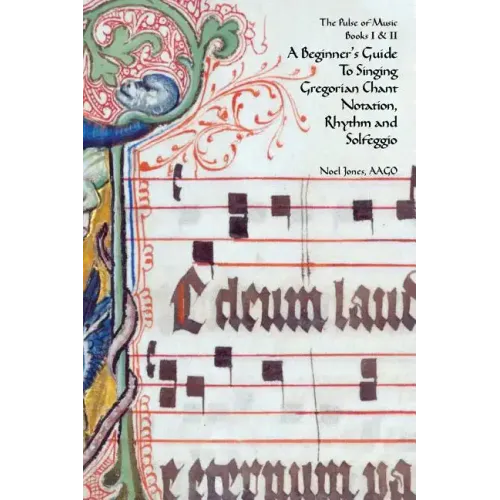 The Pulse of Music
Books I & II
A Beginner's Guide
To Singing
Gregorian Chant
Notation,
Rhythm and
Solfeggio
Noel Jones, AAGO
C deum laud
e eternum pa